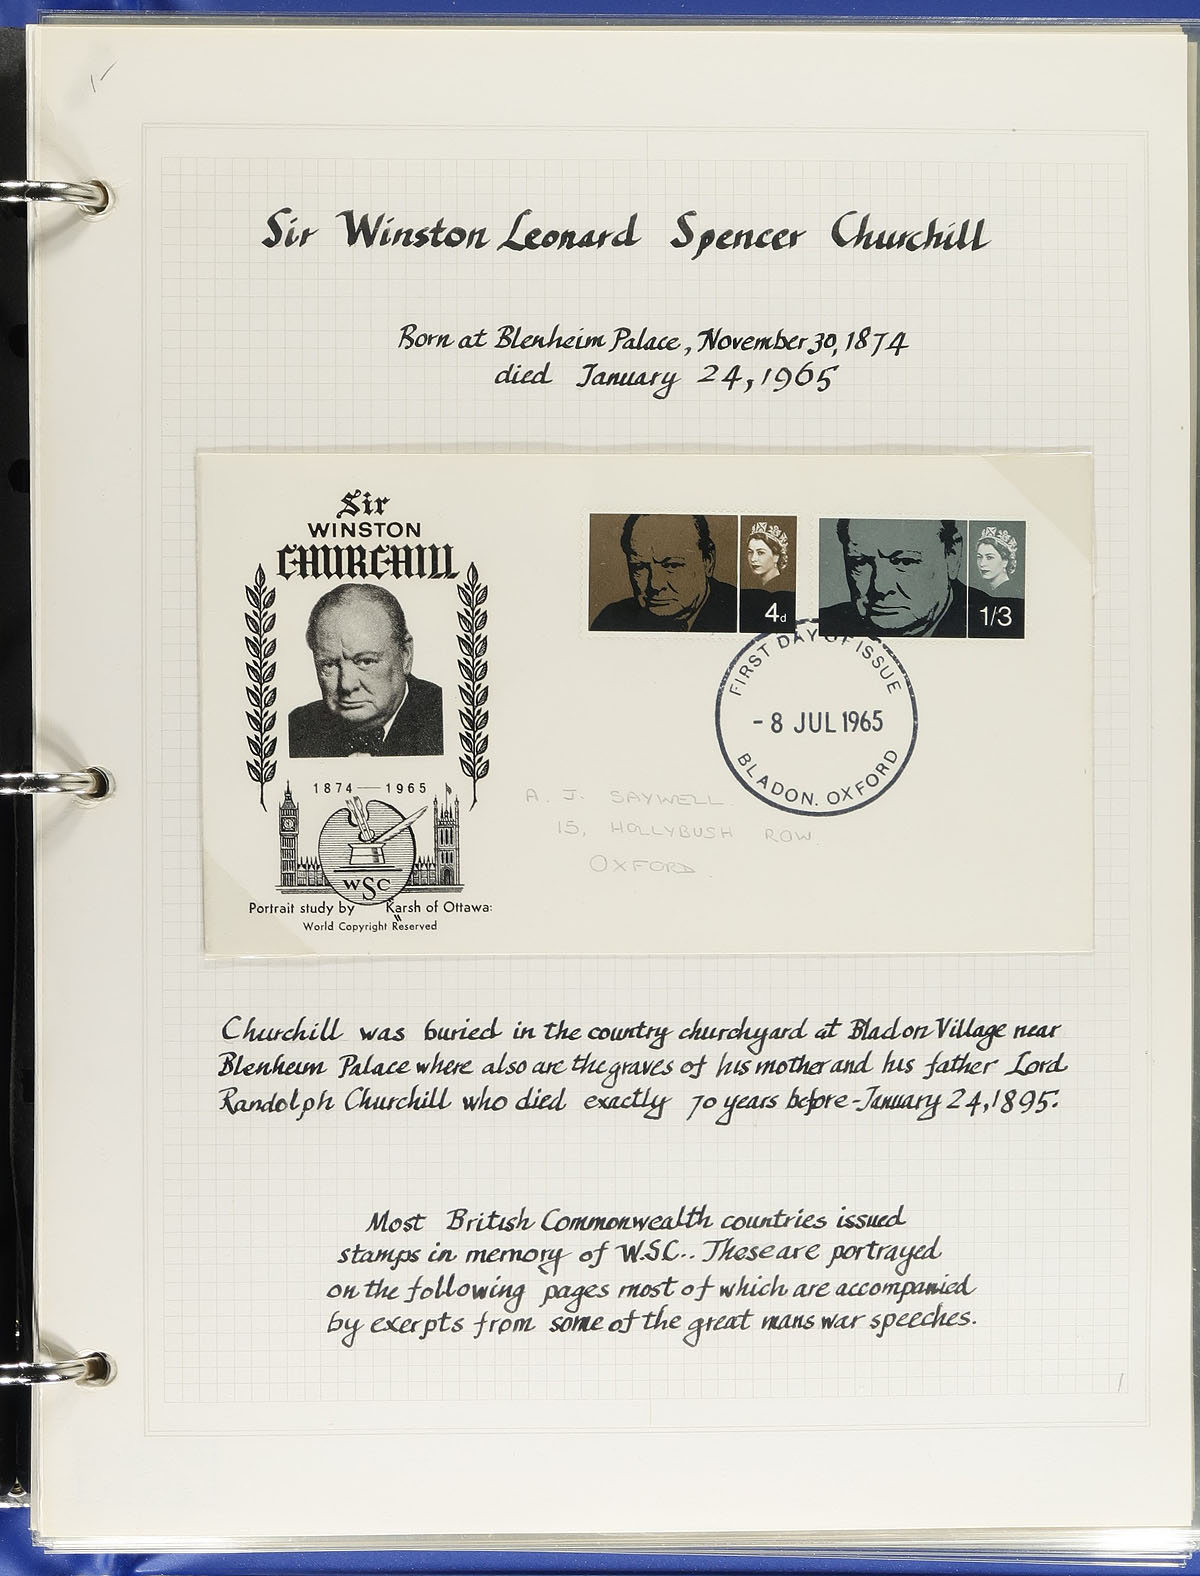 Sir Winston Leonard Spencer Churchill
Born at Blenheim Palace, November 30, 1874
died January 24, 1965
Sir
WINSTON
CHURCHILL
1874 — 1965
WSC
Portrait study by Karsh of Ottawa:
World Copyright Reserved
4d
1/3
FIRST DAY OF ISSUE
- 8 JUL 1965
BLADON. OXFORD
A. J. SAYWELL.
15, HOLLYBUSH ROW.
OXFORD.
Churchill was buried in the country churchyard at Bladon Village near
Blenheim Palace where also are the graves of his mother and his father Lord
Randolph Churchill who died exactly 70 years before - January 24, 1895.
Most British Commonwealth countries issued
stamps in memory of W.S.C.. These are portrayed
on the following pages most of which are accompanied
by exerpts from some of the great mans war speeches.
1